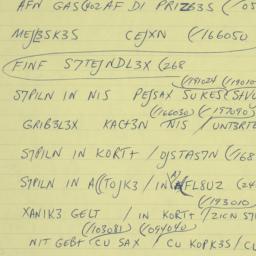 AFN GAS(402 AF DI PRIZ63S (/05
MEJLB3SK3S CEJXN (/166050
FINF S7TEJNDL3X (268
(/191024 (/19010
S7PILN IN NIS PEJSAX SUKES
(/166030) (/197040)
GRIB3L3X KACT3N NIS / UNT3RTL
S7PILN IN KORT+ / OJSTAS7N (/168
S7PILN IN A((TOJK3 / IN FL8UZ (24
(/193010
XANIK3 GELT / IN KORT+ / ZICN S7
(/103081) (/094040
NIT GEB+ CU SAX / CU KOPK3S / CU